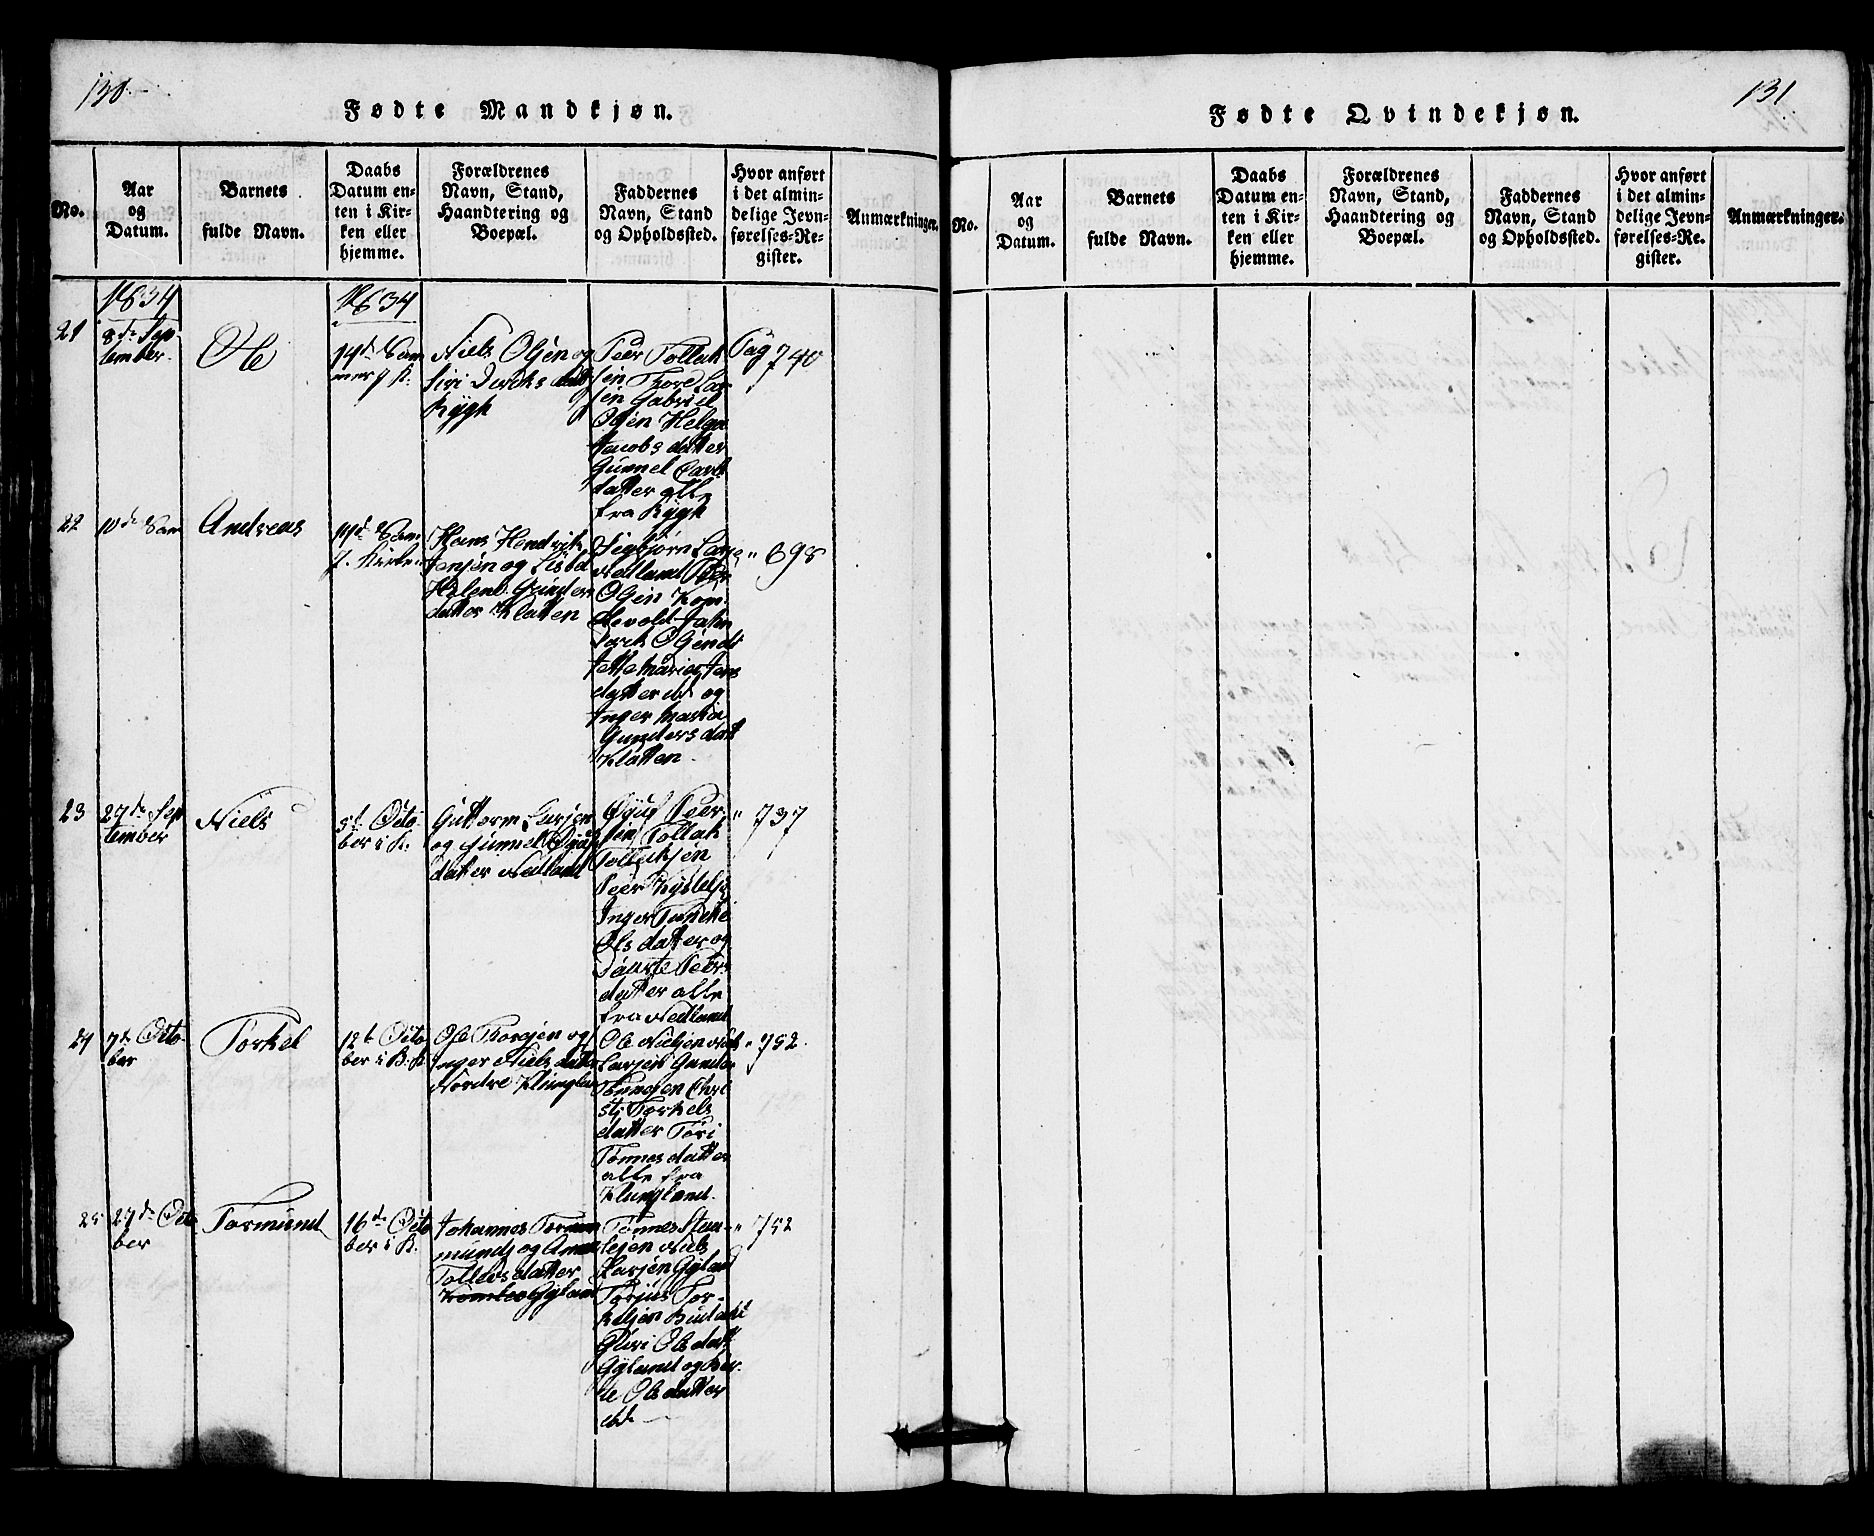 130.
Fødte Mandkjøn.
No.
Aar
og
Datum.
Barnets
fulde Navn.
Daabs
Datum en-
ten i Kir-
ken eller
hjemme.
Forældrenes
Navn, Stand,
Haandtering og
Boepæl.
Faddernes
Navn, Stand
og Opholdssted.
Hvor anført
i det almin-
delige Jevn-
førelses-Re-
gister.
Anmærkninger.
1834
21
8de Sep-
tember.
Ole
1834
14de
Niels Olsen og
Siri Diriks dat
Rygh
Peer Tollak
sen Thore Lar
sen Gabriel
Olsen Helga
Jacobs datter
Gunnel Carls
datter alle
fra Rygh
Pag 740
22
10de Sam
Andreas
14de Sam
Hans Hendrik
Jensen og Lisbd
Helene Gunders
datter Klatten
Sigbjørn Lars
Nedland Peer
Olsen Kom
Olsen
Jette Marie Jens
datter og
Inger Maria
Gunders dat
Klatten.
" 698
23
27de Sep
tember
Niels
5t Octo
ber i K.
Guttorm Larsen
og Gunnel
datter Nedland
Peer
sen Tollak
Tollaksen
Peer
Inger
Ols datter og
Peers
datter alle
fra Nedland
" 737
24
7de Octo
ber
Torkel
12t Octo
ber i B. K
Ole Thorsen og
Inger Niels datter
Nordre Klungland
Ole Nielsen Niels
Larsen Gunder
Tønnesen Chri
sti Torkels
datter Tori
Tønnes datter
alle fra
Klungland.
" 752
25
27de Octo
ber
Tormund
16de Octo
ber i K.
Johannes Tormun
munds og Anne
Tollevs datter
Gyland
Tønnes Staa-
lesen Niels
Larsen Gyland
Torjus Tor-
kelsen
Siri Ols dat
Gyland og Ber-
te Ols datter
ibd.
" 752
131
Fødte Qvindekjøn.
No.
Aar
og
Datum.
Barnets
fulde Navn.
Daabs
Datum en-
ten i Kir-
ken eller
hjemme.
Forældrenes
Navn, Stand,
Haandtering og
Boepæl.
Faddernes
Navn, Stand
og Opholdssted.
Hvor anført
i det almin-
delige Jevn-
førelses-Re-
gister.
Anmærkninger.